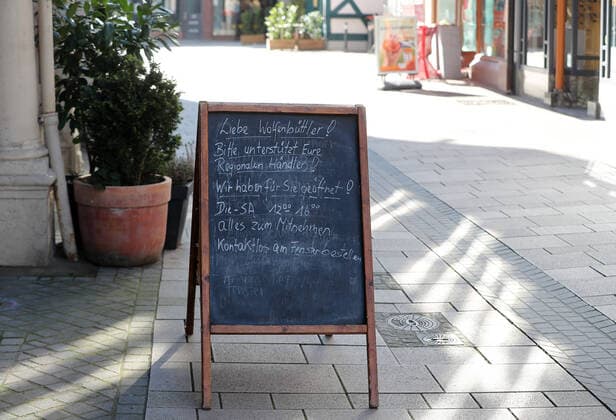 Liebe Wolfenbüttler!
Bitte, unterstützt Eure
Regionalen Händler!
Wir haben für Sie geöffnet!
Die-SA 12⁰⁰ 18⁰⁰
alles zum Mitnehmen
Kontaktlos am Fenster bestellen